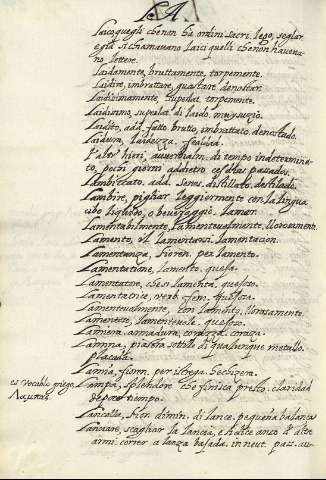 L A
Laico quegli che non ha ordini sacri. lego, seglar.
e già si chiamavano laici quelli che non haveva-
no lettere.
Laidamente, bruttamente, torpemente.
Laidire, imbrattare, guastare denostar.
Laidissimamente, superlat. torpemente.
Laidissimo, superlat. di laido, muy suzio.
Laidito, add. fatto brutto, imbrattato, denostado.
Laidura, laidezza, fealdad.
L'altr' hieri, avverbiam. di tempo indetermina-
to, pochi giorni adietro
Lambiccato, add. distillato, destilado.
Lambire, pigliar leggiermente con la lingua
cibo liquido, o beveraggio, lamer.
Lamentabilmente, lamentevolmente, llorosamente.
Lamento, il lamentarsi, lamentacion.
Lamentanza, per lamento.
Lamentatione, lamento, quexa.
Lamentatore, che si lamenta, quexoso.
Lamentatrice, verb. fem. quexosa.
Lamentevolmente, con lamento, llorosamente.
Lamentoso, lamentevole, quexoso.
Lamiera, armadura, corazza, coraza.
Lamina, piastra sottile di qualunque metallo.
plancha.
Lamia, per istrega. hechizera.
es vocablo griego Lampa, splendore che finisce presto. claridad
Λαμπας de poco tiempo.
Lancetta, dimin. di lance. pequeña balança
Lanciare, scagliar la lancia, e si dice anco d'altre
armi. correr a lanza baxada. in neut. pass. av-